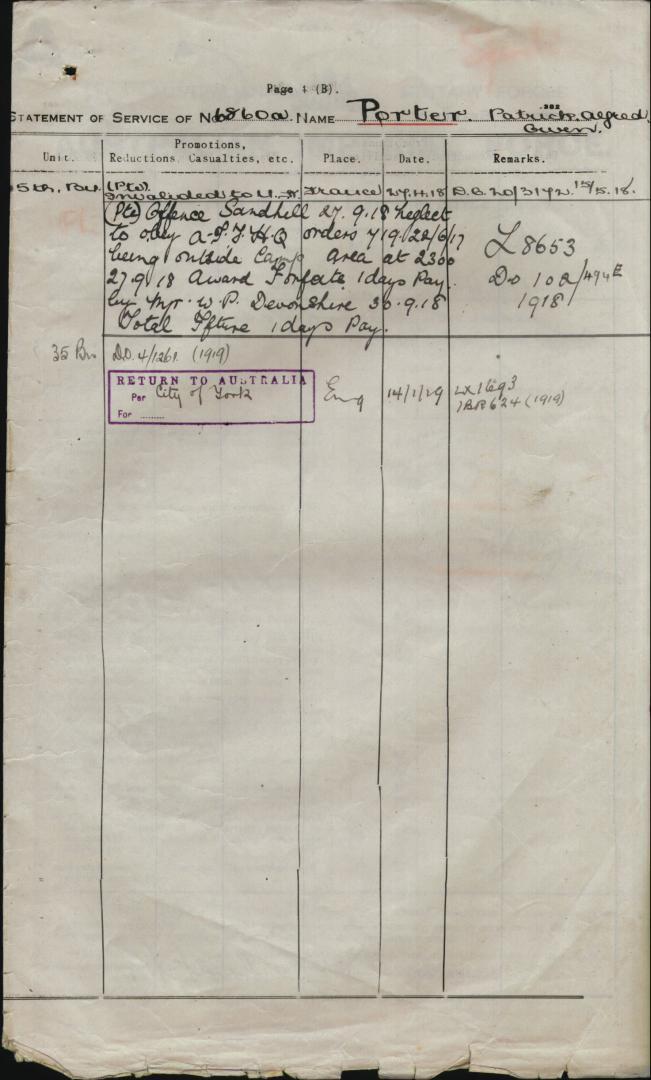 Page 4 (B).
STATEMENT OF SERVICE OF No 6860a. NAME Porter. Patrick Alfred
Owen.
Unit. Promotions, Reductions, Casualties, etc. Place. Date. Remarks.
35th, Bn. (Pte) Invalided to U.K. France 27.4.18 D.O. 20/3172. 15/5.18.
(Pte) Offence Sandhill 27.9.18 Neglect
to obey A.I.F.H.Q orders 719. 22/6/17
being outside Camp area at 2300
27.9.18 Award Forfeits 1 days Pay.
by Mjr. W.P. Devonshire 30.9.18
Total Ffture 1 days Pay.
L 8653
Do 102/494E
1918
35 Bn D.O. 4/1261 (1919)
RETURN TO AUSTRALIA
Per City of York
For
Eng 14/1/19
(1919)